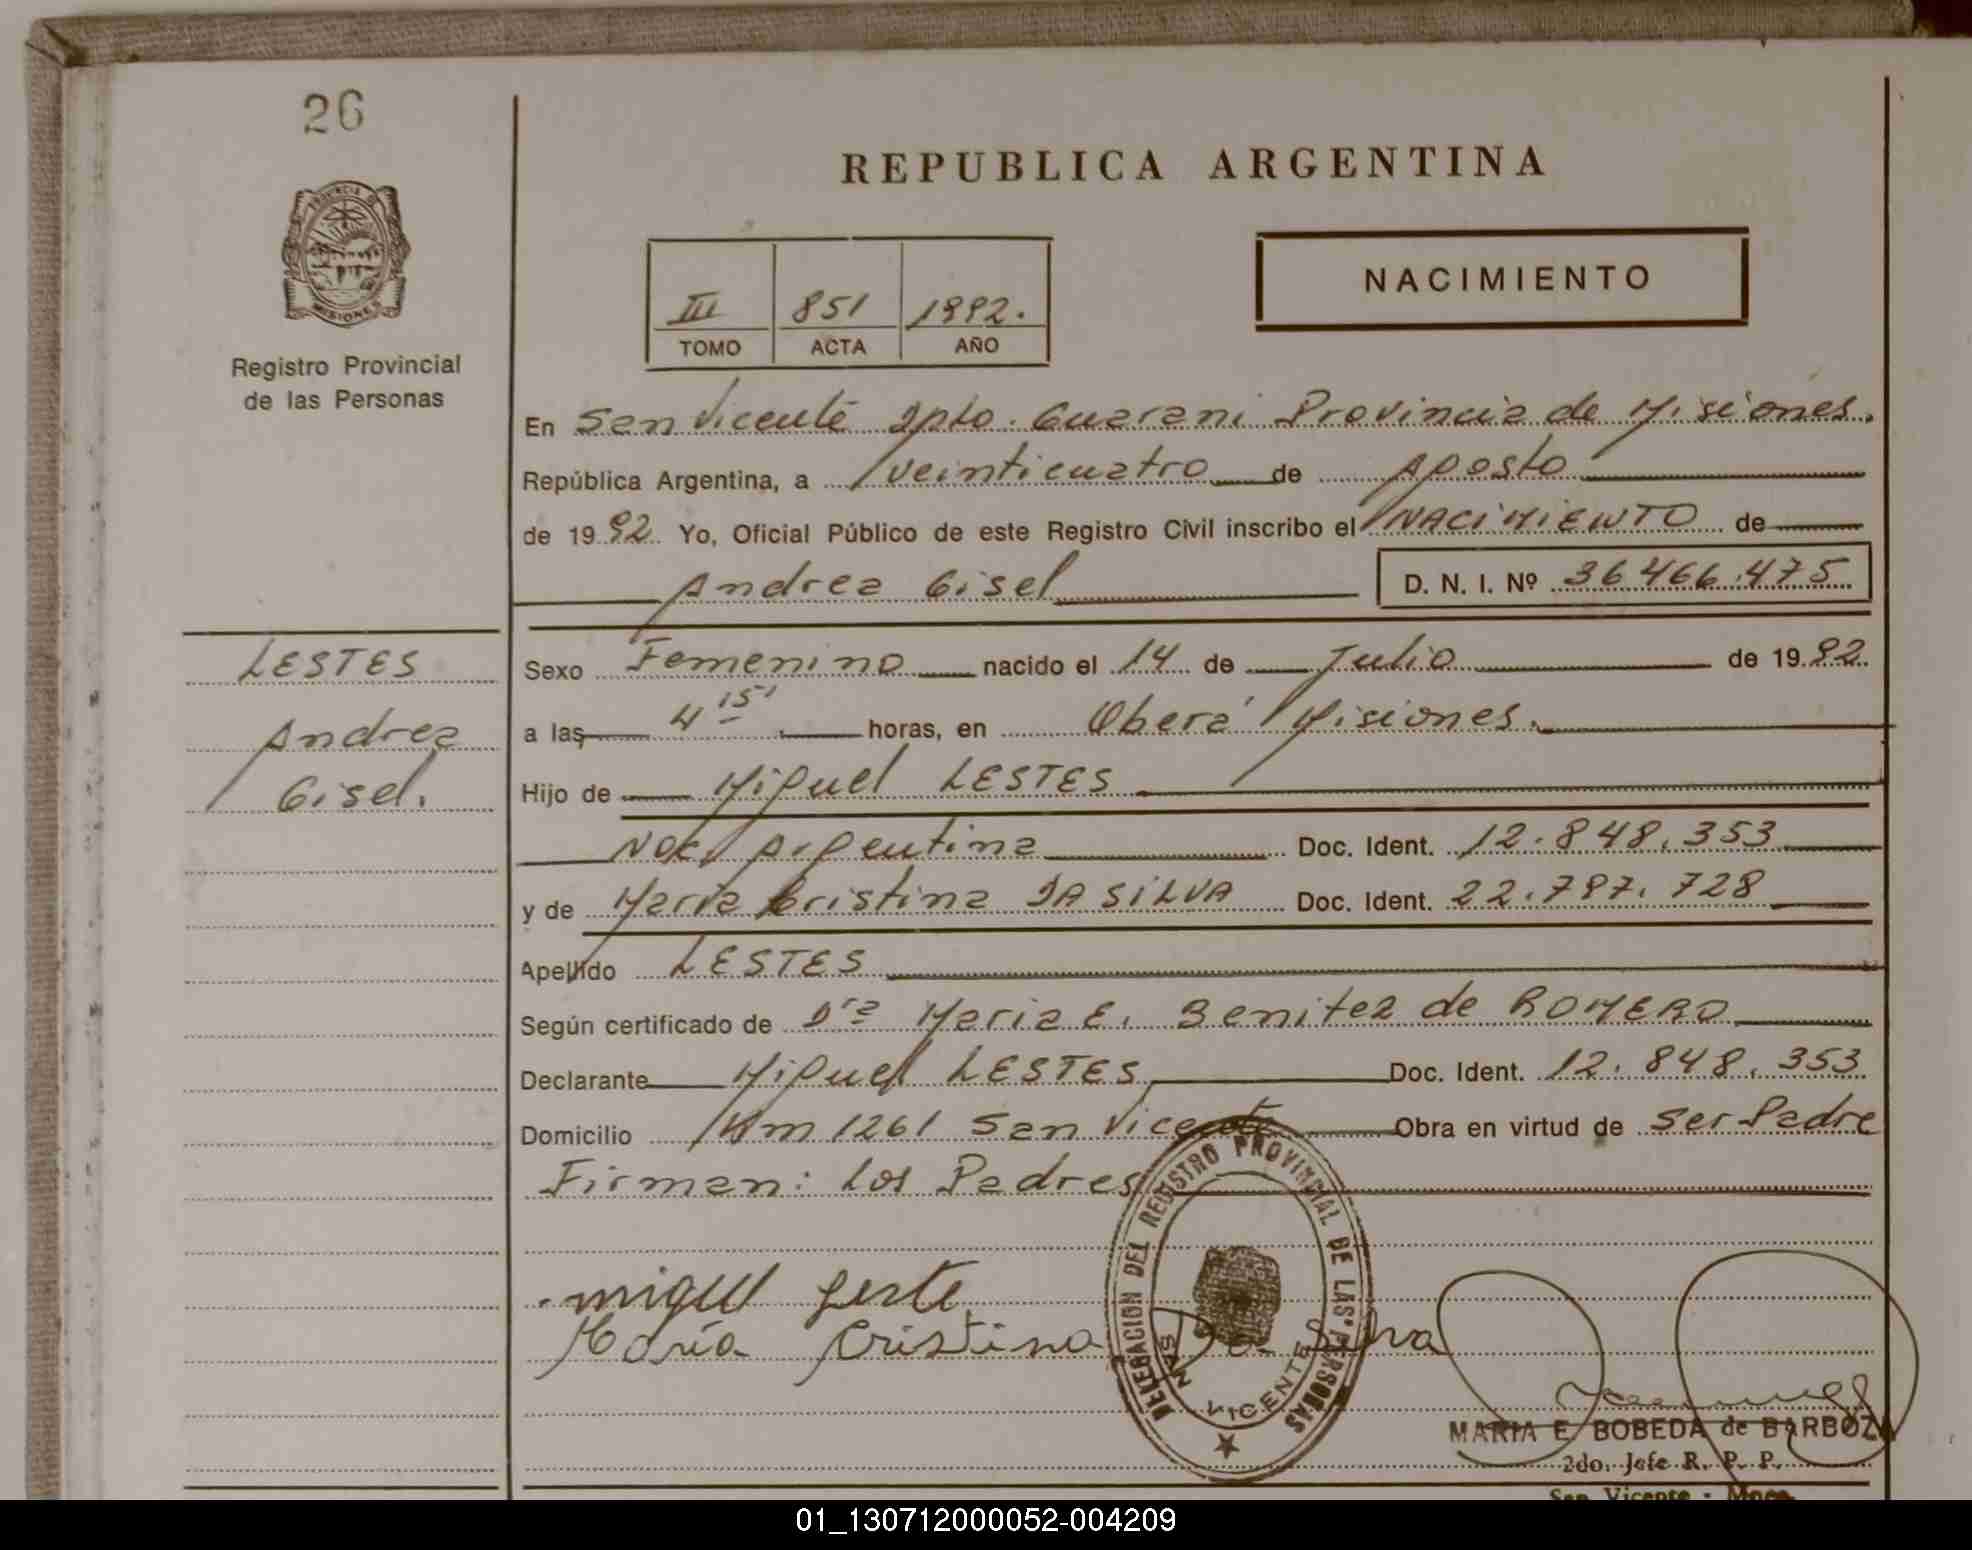 26
REPUBLICA ARGENTINA
PROVINCIA D
MISIONES
Registro Provincial
de las Personas
III 851 1992.
TOMO ACTA AÑO
NACIMIENTO
En San Vicente Dpto. Guarani Provincia de Misiones.
República Argentina, a veinticuatro de Agosto
de 1992. Yo, Oficial Público de este Registro Civil inscribo el NACIMIENTO de
Andrea Gisel D. N. I. Nº 36466.475
LESTES
Andrea
Gisel.
Sexo Femenino nacido el 14 de Julio de 1992.
a las 4 15' horas, en Oberá Misiones.
Hijo de Miguel LESTES
Nac. Argentina Doc. Ident. 12.848.353
y de Maria Cristina DA SILVA Doc. Ident. 22.787.728
Apellido LESTES
Según certificado de Dra Maria E. Benitez de ROMERO
Declarante Miguel LESTES Doc. Ident. 12.848.353
Domicilio Km 1261 San Vicente Obra en virtud de Ser Padre
Firman: los Padres
miguel leste
María Cristina Da Silva
DELEGACION DEL REGISTRO PROVINCIAL DE LAS PERSONAS
SAN VICENTE
MARIA E. BOBEDA de BARBOZA
2do. Jefe R. P. P.
San Vicente - Mnes.
01_130712000052-004209